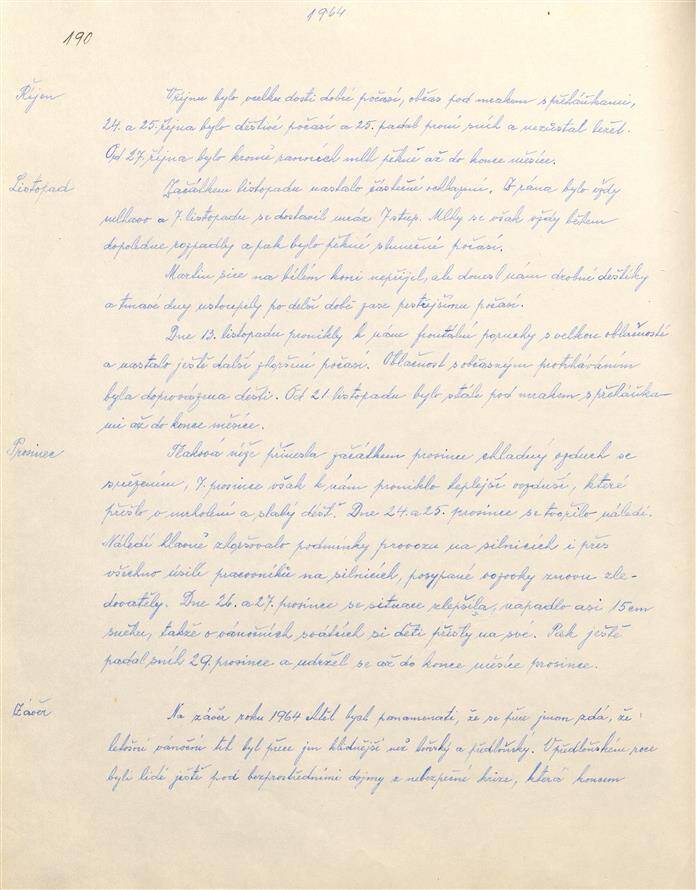 1964
190
Říjen
V říjnu bylo vcelku dosti dobré počasí, občas pod mrakem s přeháňkami,
24. a 25. října bylo deštivé počasí a 25. padal první sníh a nezůstal ležet.
Od 27. října bylo kromě ranních mlh pěkně až do konce měsíce.
Listopad
Začátkem listopadu nastalo částečné ochlazení. Z rána bylo vždy
mlhavo a 7. listopadu se dostavil mráz 7 stup. Mlhy se však vždy během
dopoledne rozpadly a pak bylo pěkné slunečné počasí.
Martin sice na bílém koni nepřijel, ale donesl nám drobné deštíky
a tmavé dny ustoupily po delší době zase pestřejšímu počasí.
Dne 13. listopadu pronikly k nám frontální poruchy s velkou oblačností
a nastalo ještě další zhoršení počasí. Oblačnost s občasným protrháváním
byla doprovázena dešti. Od 21. listopadu bylo stále pod mrakem s přeháňka-
mi až do konce měsíce.
Prosinec
Tlaková níže přinesla začátkem prosince chladný vzduch se
sněžením, 7. prosince však k nám proniklo teplejší ovzduší, které
přešlo v mrholení a slabý déšť. Dne 24. a 25. prosince se tvořilo náledí.
Náledí hlavně zhoršovalo podmínky provozu na silnicích i přes
všechno úsilí pracovníků na silnicích, posypané vozovky znovu zle-
dovatěly. Dne 26. a 27. prosince se situace zlepšila, napadlo asi 15 cm
sněhu, takže o vánočních svátcích si děti přišly na své. Pak ještě
padal sníh 29. prosince a udržel se až do konce měsíce prosince.
Závěr
Na závěr roku 1964 chtěl bych poznamenati, že se přece jenom zdá, že
letošní vánoční trh byl přece jen klidnější než loňský a předloňský. V předloňském roce
byli lidé ještě pod bezprostředními dojmy z nebezpečné krize, která koncem